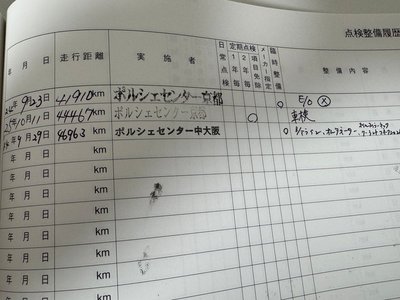 点検整備履歴
年 月 日 走行距離 実施者 日常点検 定期点検 1年毎 2年毎 メーカ指定 臨時整備 整備内容
24年9月23日 41910km ポルシェセンター京都 ○ E/O
25年10月11日 44467km ポルシェセンター京都 ○ 車検
年9月29日 46963km ポルシェセンター中大阪 ○
年 月 日 km
年 月 日 km
年 月 日 km
年 月 日 km
年 月 日 km
年 月 日 km
年 月 日 km
年 月 日 km
年 月 日 km